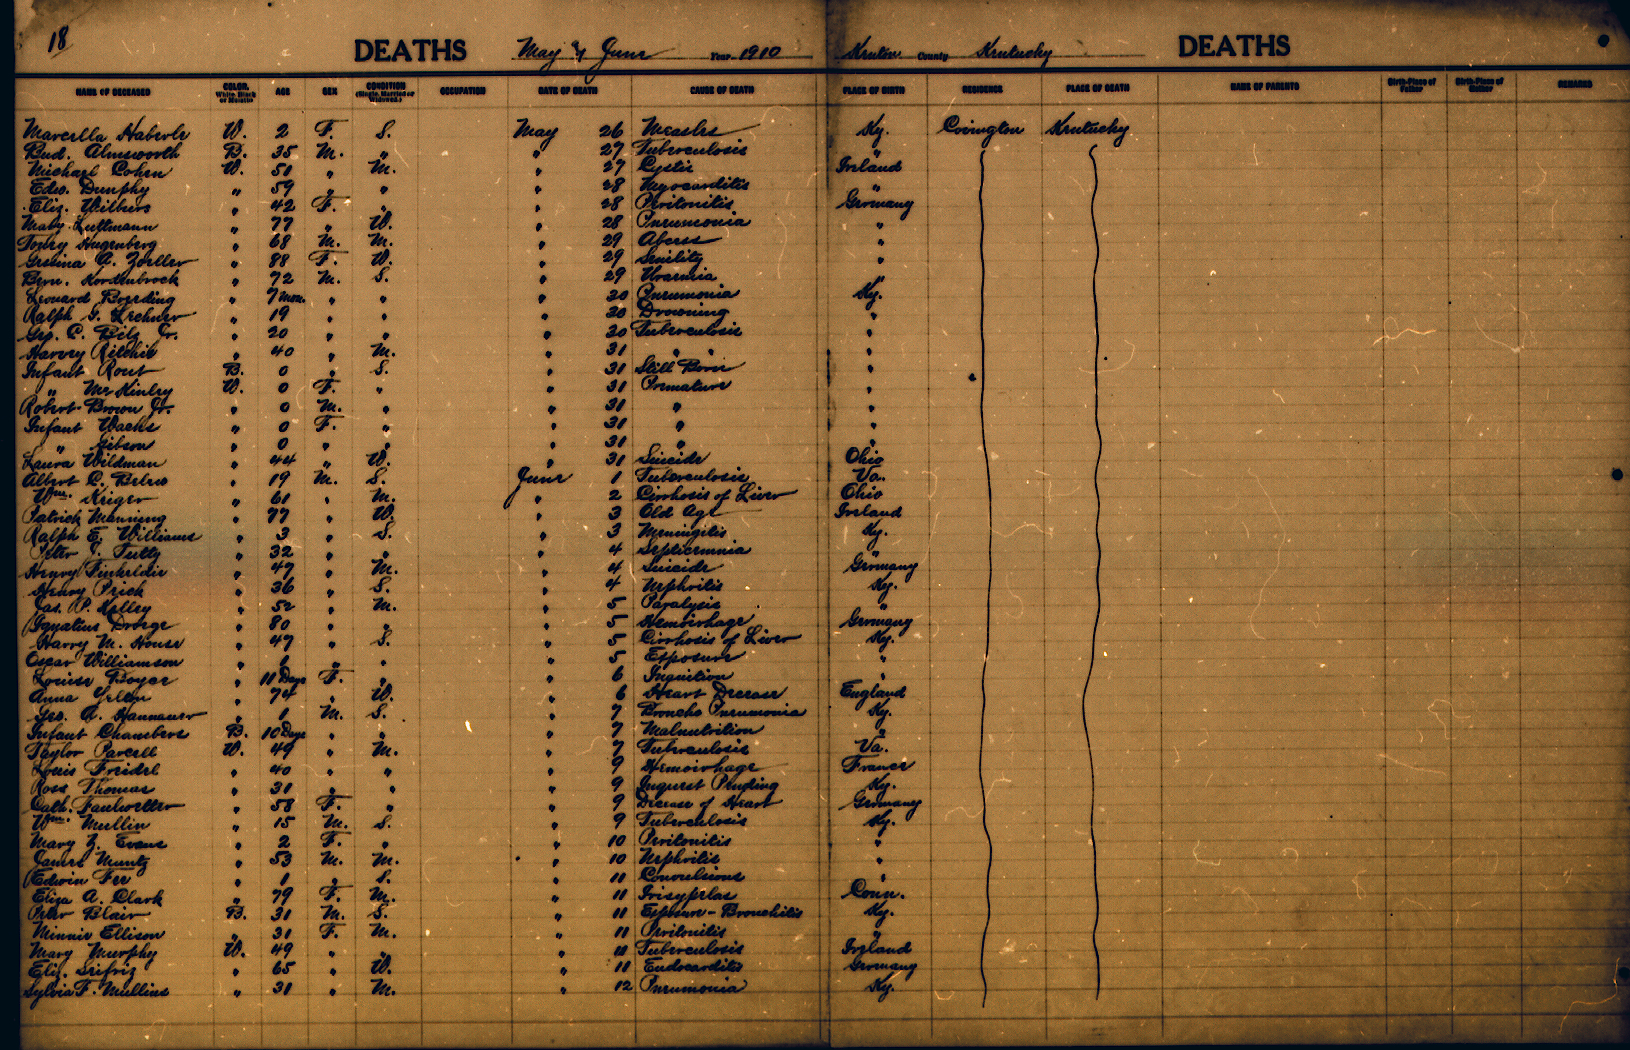 18
DEATHS May & June Year 1910 Kenton County Kentucky DEATHS
NAME OF DECEASED COLOR, White, Black or Mulatto AGE SEX CONDITION (Single, Married or Widowed.) OCCUPATION DATE OF DEATH CAUSE OF DEATH PLACE OF BIRTH RESIDENCE PLACE OF DEATH NAME OF PARENTS Birth-Place of Father Birth-Place of Mother REMARKS
Marcella Haberle W. 2 F. S. May 26 Measles Ky. Covington Kentucky
Bud. Almsworth B. 35 M. " " 27 Tuberculosis "
Michael Cohen W. 51 " M. " 27 Cystic Ireland
Edw. Dunphy " 59 " " " 28 Myocarditis "
Eliz. Wilbers " 42 F. " " 28 Peritonitis Germany
Mary Luttmann " 77 " W. " 28 Pneumonia "
Hugenberg " 68 M. M. " 29 Abcess "
Gesina A. Zoeller " 88 F. W. " 29 Senility "
Bern. Kortenbrock " 72 M. S. " 29 Uraemia "
Leonard Boerding " 7 Mos. " " " 30 Pneumonia Ky.
Ralph G. Lechner " 19 " " " 30 Drowning "
Geo. C. Bilz Jr. " 20 " " " 30 Tuberculosis "
Harvey Ritchie " 40 " M. " 31 " " "
Infant Rout B. 0 " S. " 31 Still Born "
" McKinley W. 0 F. " " 31 Premature "
Robert Brown Jr. " 0 M. " " 31 " "
Infant Wachs " 0 F. " " 31 " "
" Gibson " 0 " " " 31 " "
Laura Wildman " 44 " W. " 31 Suicide Ohio
Albert C. Belew " 19 M. S. June 1 Tuberculosis Va.
Wm. Kriger " 61 " M. " 2 Cirrhosis of Liver Ohio
Patrick Manning " 77 " W. " 3 Old Age Ireland
Ralph E. Williams " 3 " S. " 3 Meningitis Ky.
Peter J. Tutty " 32 " " " 4 Septicemnia "
Henry Finkeldie " 47 " M. " 4 Suicide Germany
Henry Prick " 36 " S. " 4 Nephritis Ky.
Jas. P. Kelley " 52 " M. " 5 Paralysis "
Ignatius Droege " 80 " " " 5 Hemorrhage Germany
Harry M. House " 47 " S. " 5 Cirrhosis of Liver Ky.
Oscar Williamson " " " " 5 Exposure "
Louise Boyer " 11 Days F. " " 6 Inanition "
Anna Yelton " 74 " W. " 6 Heart Decease England
Geo. A. Hannauer " 1 M. S. " 7 Broncho Pneumonia Ky.
Infant Chambers B. 10 Days " " " 7 Malnutrition "
Taylor Parcell W. 49 " M. " 7 Tuberculosis Va.
Louis Freidel " 40 " " " 9 Hemorrhage France
Ross Thomas " 31 " " " 9 Inquest Pending Ky.
Cath. Faulwetter " 58 F. " " 9 Decease of Heart Germany
Wm. Mullin " 15 M. S. " 9 Tuberculosis Ky.
Mary Z. Evans " 2 F. " " 10 Peritonitis "
James Muntz " 53 M. M. " 10 Nephritis "
Edwin Fee " 1 " S. " 11 Convulsions "
Eliza A. Clark " 79 F. M. " 11 Erisypelas Conn.
Peter Blair B. 31 M. S. " 11 Exposure - Bronchitis Ky.
Minnie Ellison " 31 F. M. " 11 Peritonitis "
Mary Murphy W. 49 " " " 11 Tuberculosis Ireland
Eliz. Seifriz " 65 " W. " 11 Endocarditis Germany
Sylvia F. Mullins " 31 " M. " 12 Pneumonia Ky.